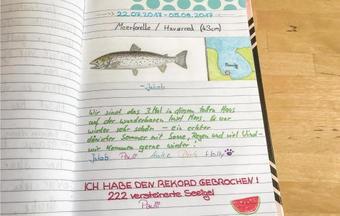 22.07.2017 - 05.08.2017
Meerforelle / Havørred (63cm)
- Jakob
Wir sind das 3. Mal in diesem tollen Haus
auf der wunderbaren Insel Møns. Es war
wieder sehr schön - ein echter
dänischer Sommer mit Sonne, Regen und viel Wind -
wir kommen gerne wieder!
Jakob Paul Holly
ICH HABE DEN REKORD GEBROCHEN!
222 versteinerte Seeigel
Paul